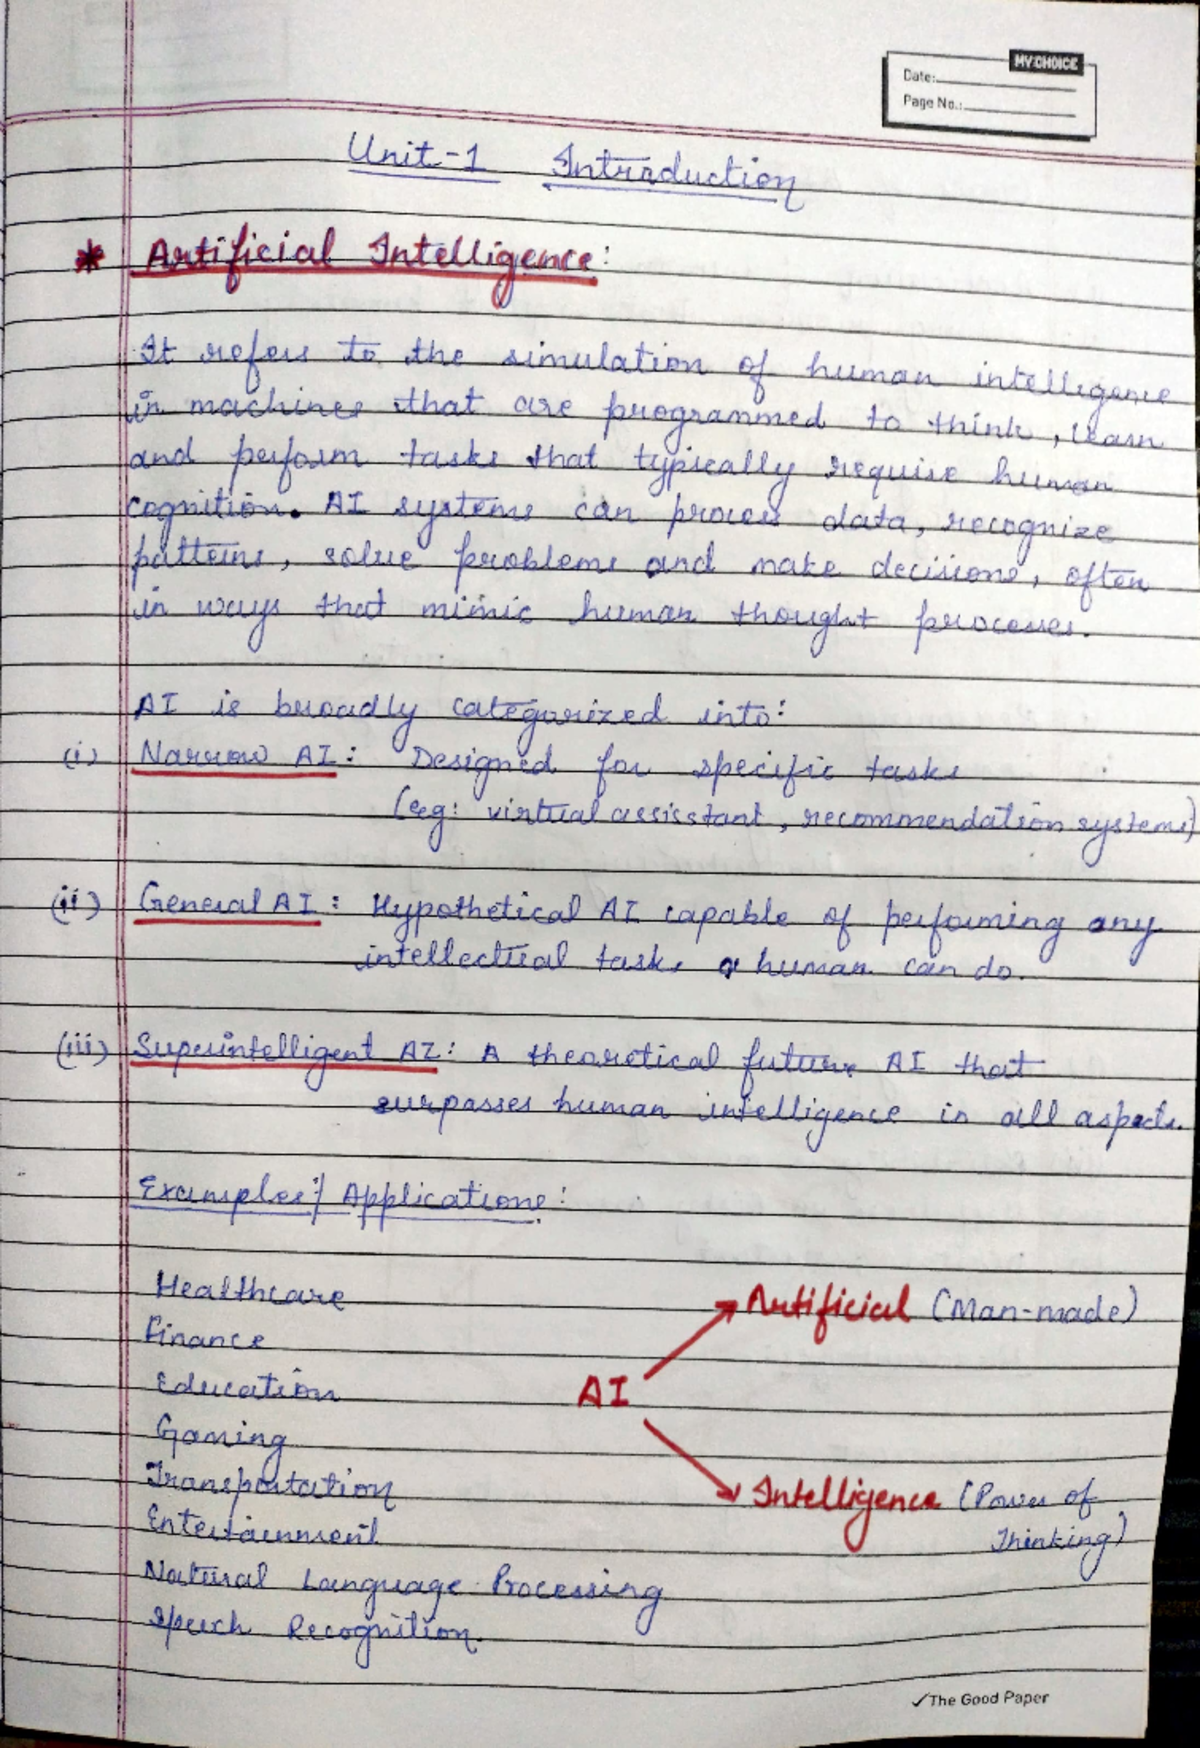 MY CHOICE
Date:
Page No.:
Unit-1 Introduction
* Artificial Intelligence:
It refers to the simulation of human intelligence
in machines that are programmed to think, learn
and perform tasks that typically require human
cognition. AI systems can process data, recognize
patterns, solve problems and make decisions, often
in ways that mimic human thought processes.
AI is broadly categorized into:
(i) Narrow AI: Designed for specific tasks
(eg: virtual assisstant, recommendation systems)
(ii) General AI: Hypothetical AI capable of performing any
intellectual tasks a human can do.
(iii) Superintelligent AI: A theoretical future AI that
surpasses human intelligence in all aspects.
Examples/Applications:
Healthcare
Finance
Education
Gaming
Transportation
Entertainment
Natural Language Processing
Speech Recognition.
Artificial (Man-made)
AI
Intelligence (Power of
Thinking)
✓The Good Paper